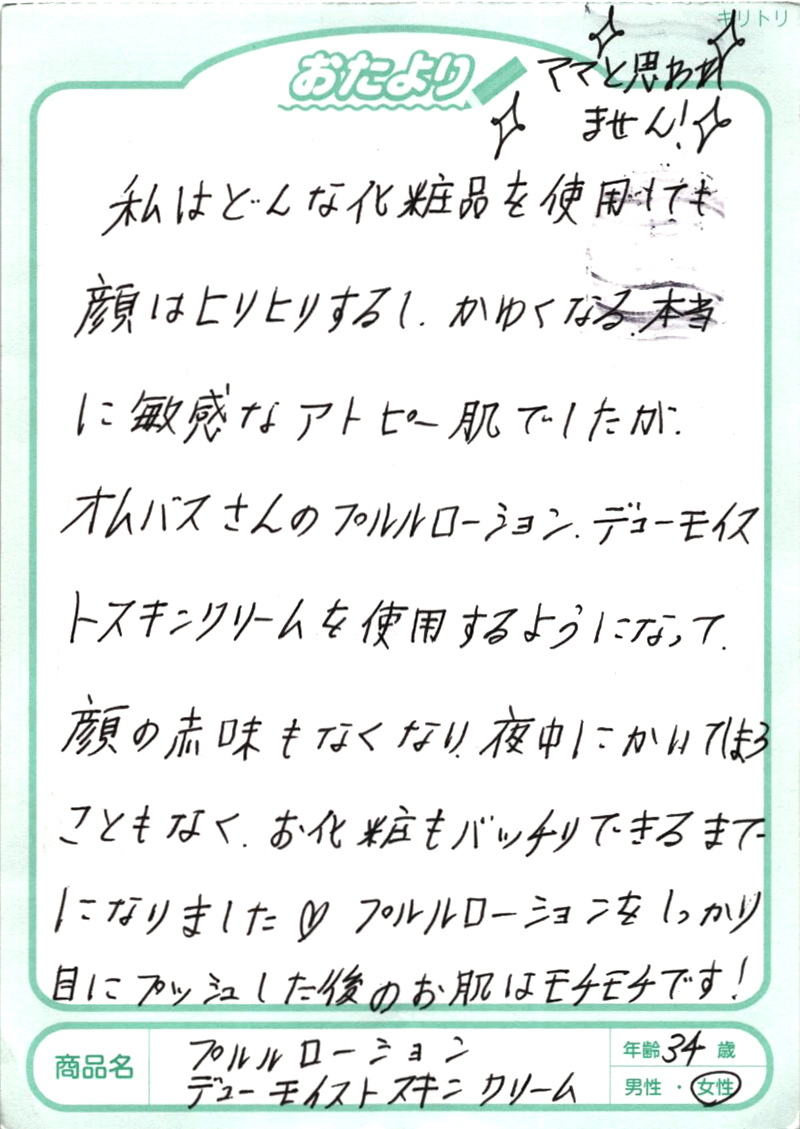 キリトリ
おたより
ママと思われ
ません!
私はどんな化粧品を使用しても
顔はヒリヒリするし、かゆくなる、本当
に敏感なアトピー肌でしたが、
オムバスさんのプルルローション、デューモイス
トスキンクリームを使用するようになって、
顔の赤味もなくなり、夜中にかいてしまう
こともなく、お化粧もバッチリできるまで
になりました♡ プルルローションをしっかり
目にプッシュした後のお肌はモチモチです!
商品名
プルルローション
デューモイストスキンクリーム
年齢34歳
男性・女性